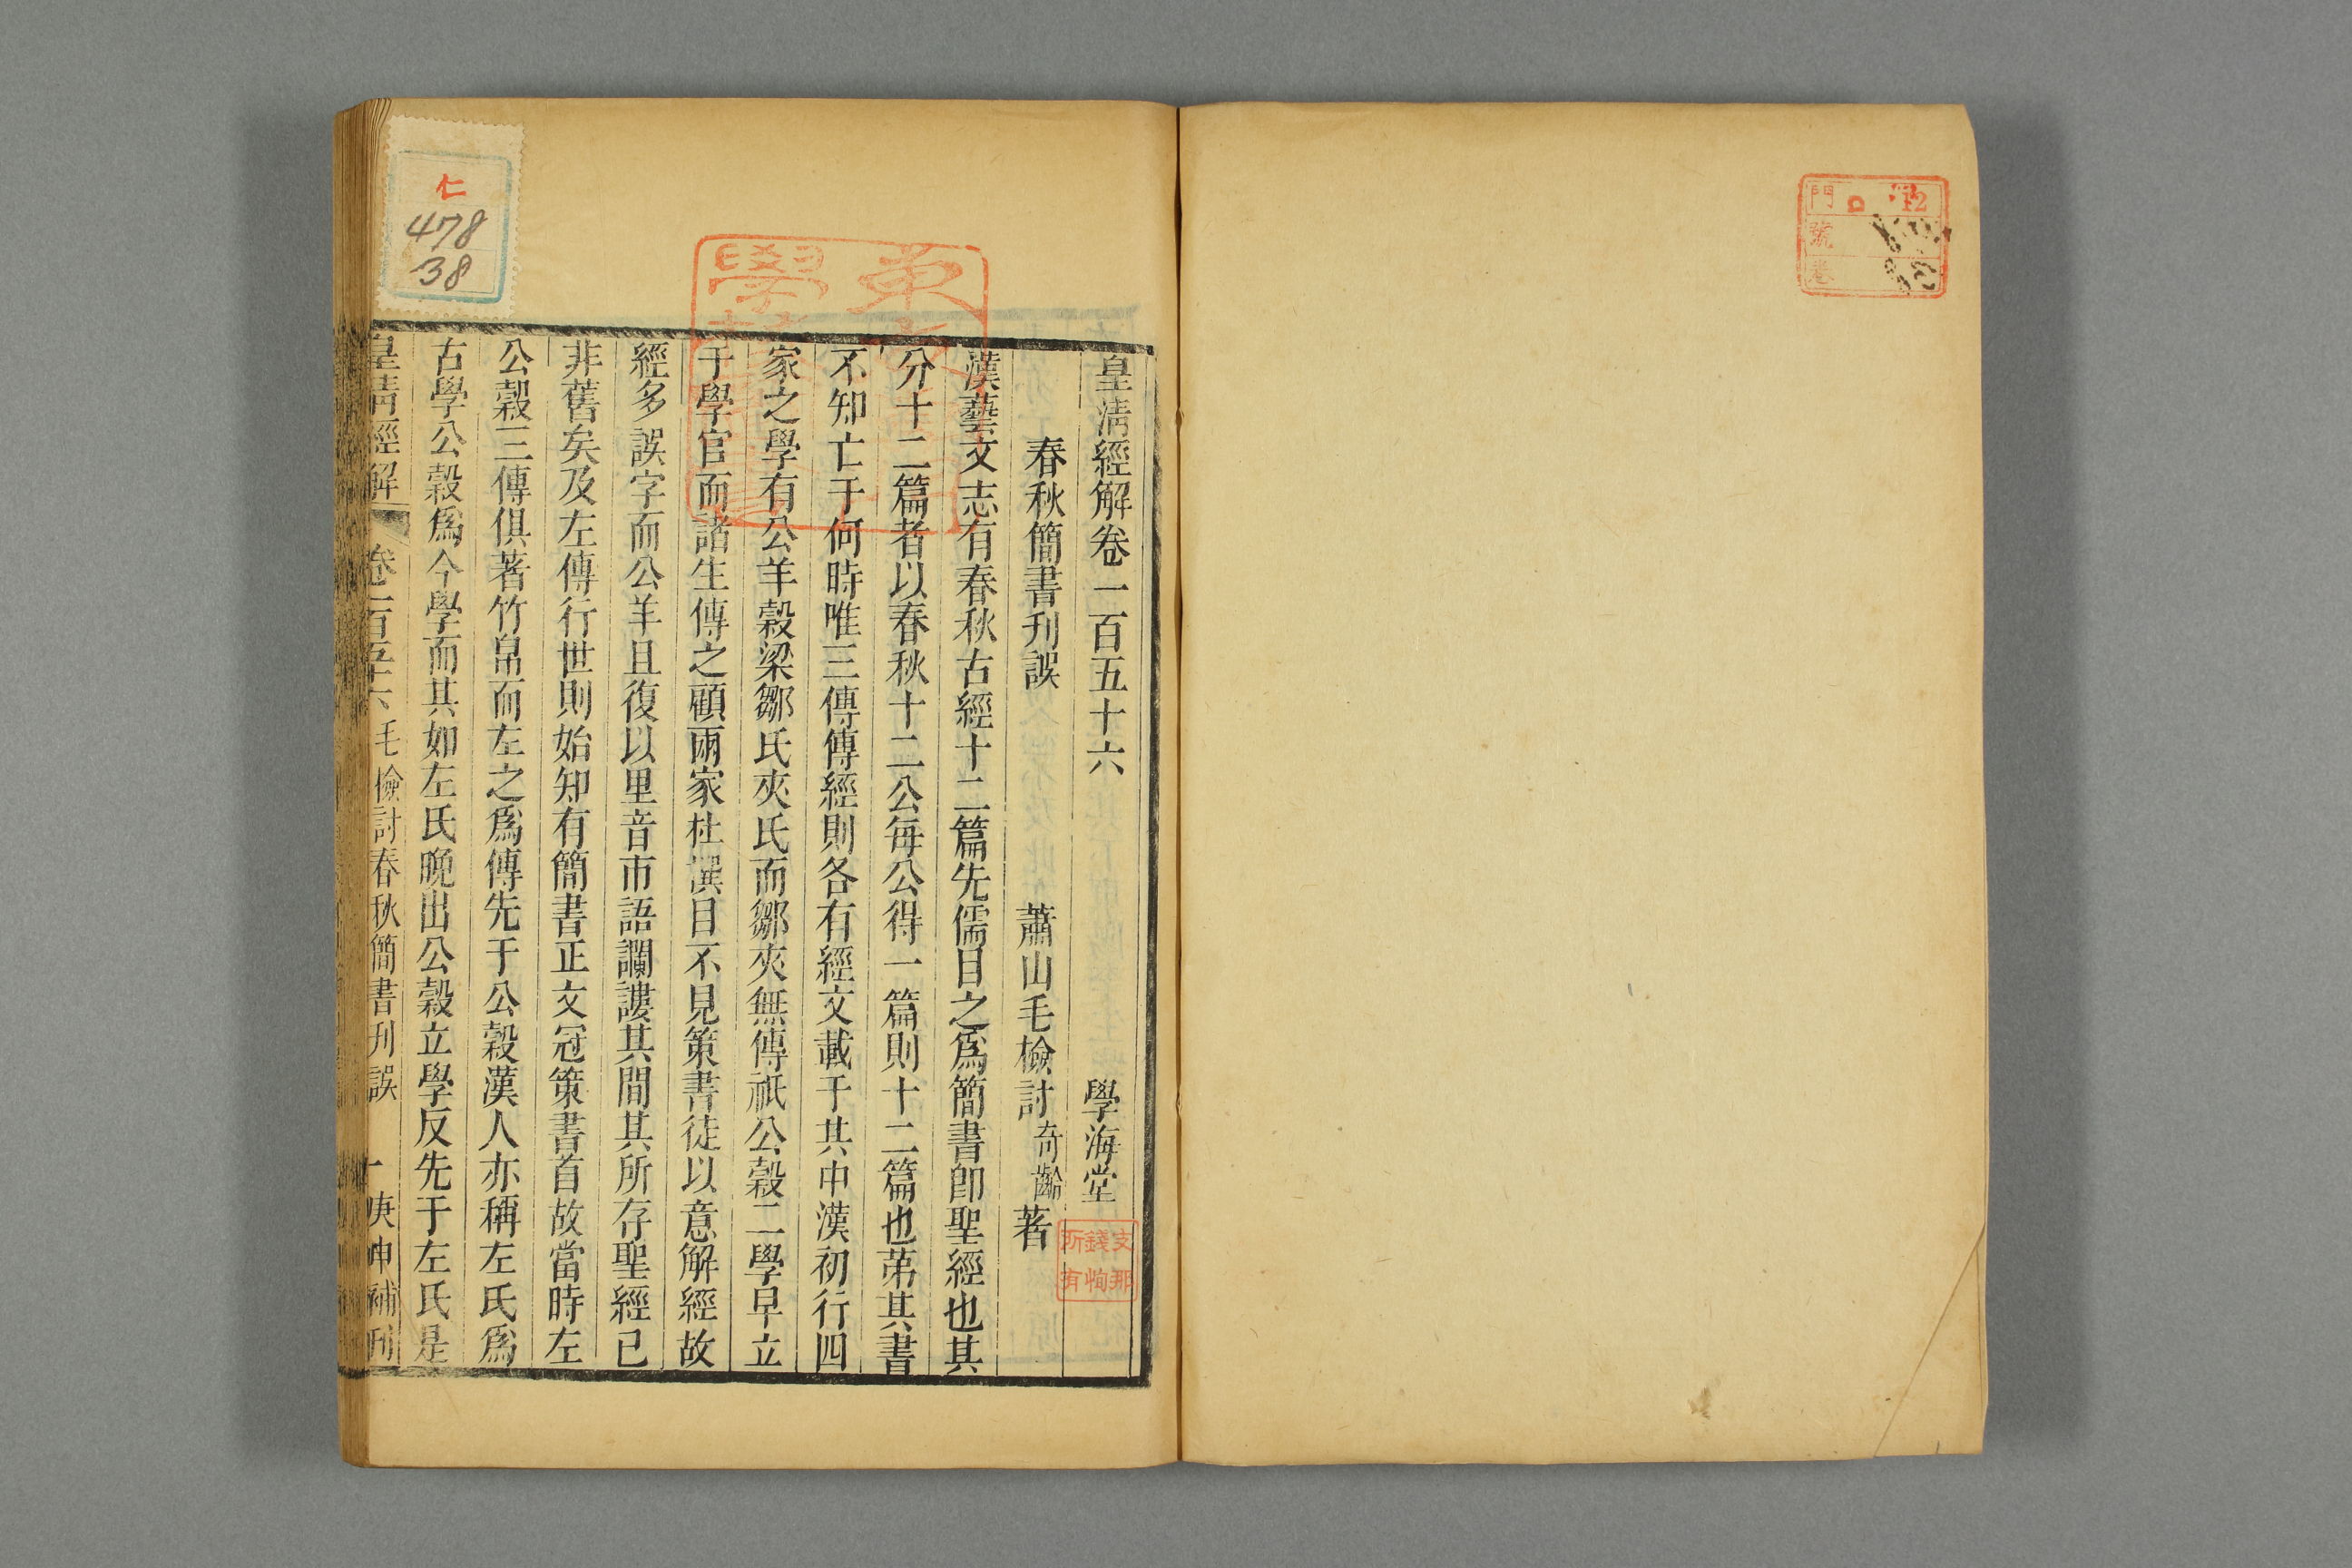 門 12
號
卷
皇清經解卷一百五十六 學海堂
春秋簡書刊誤 蕭山毛檢討奇齡著
漢藝文志有春秋古經十二篇先儒目之爲簡書卽聖經也其
分十二篇者以春秋十二公每公得一篇則十二篇也第其書
不知亡于何時唯三傳傳經則各有經文載于其中漢初行四
家之學有公羊穀梁鄒氏夾氏而鄒夾無傳祇公穀二學早立
于學官而諸生傳之顧兩家杜譔目不見策書徒以意解經故
經多誤字而公羊且復以里音市語讕謱其間其所存聖經已
非舊矣及左傳行世則始知有簡書正文冠策書首故當時左
公穀三傳俱著竹帛而左之爲傳先于公穀漢人亦稱左氏爲
古學公穀爲今學而其如左氏晚出公穀立學反先于左氏是
皇清經解 卷一百五十六 毛檢討春秋簡書刊誤 一 庚申補刊
支那
錢恂
所有
仁
478
38